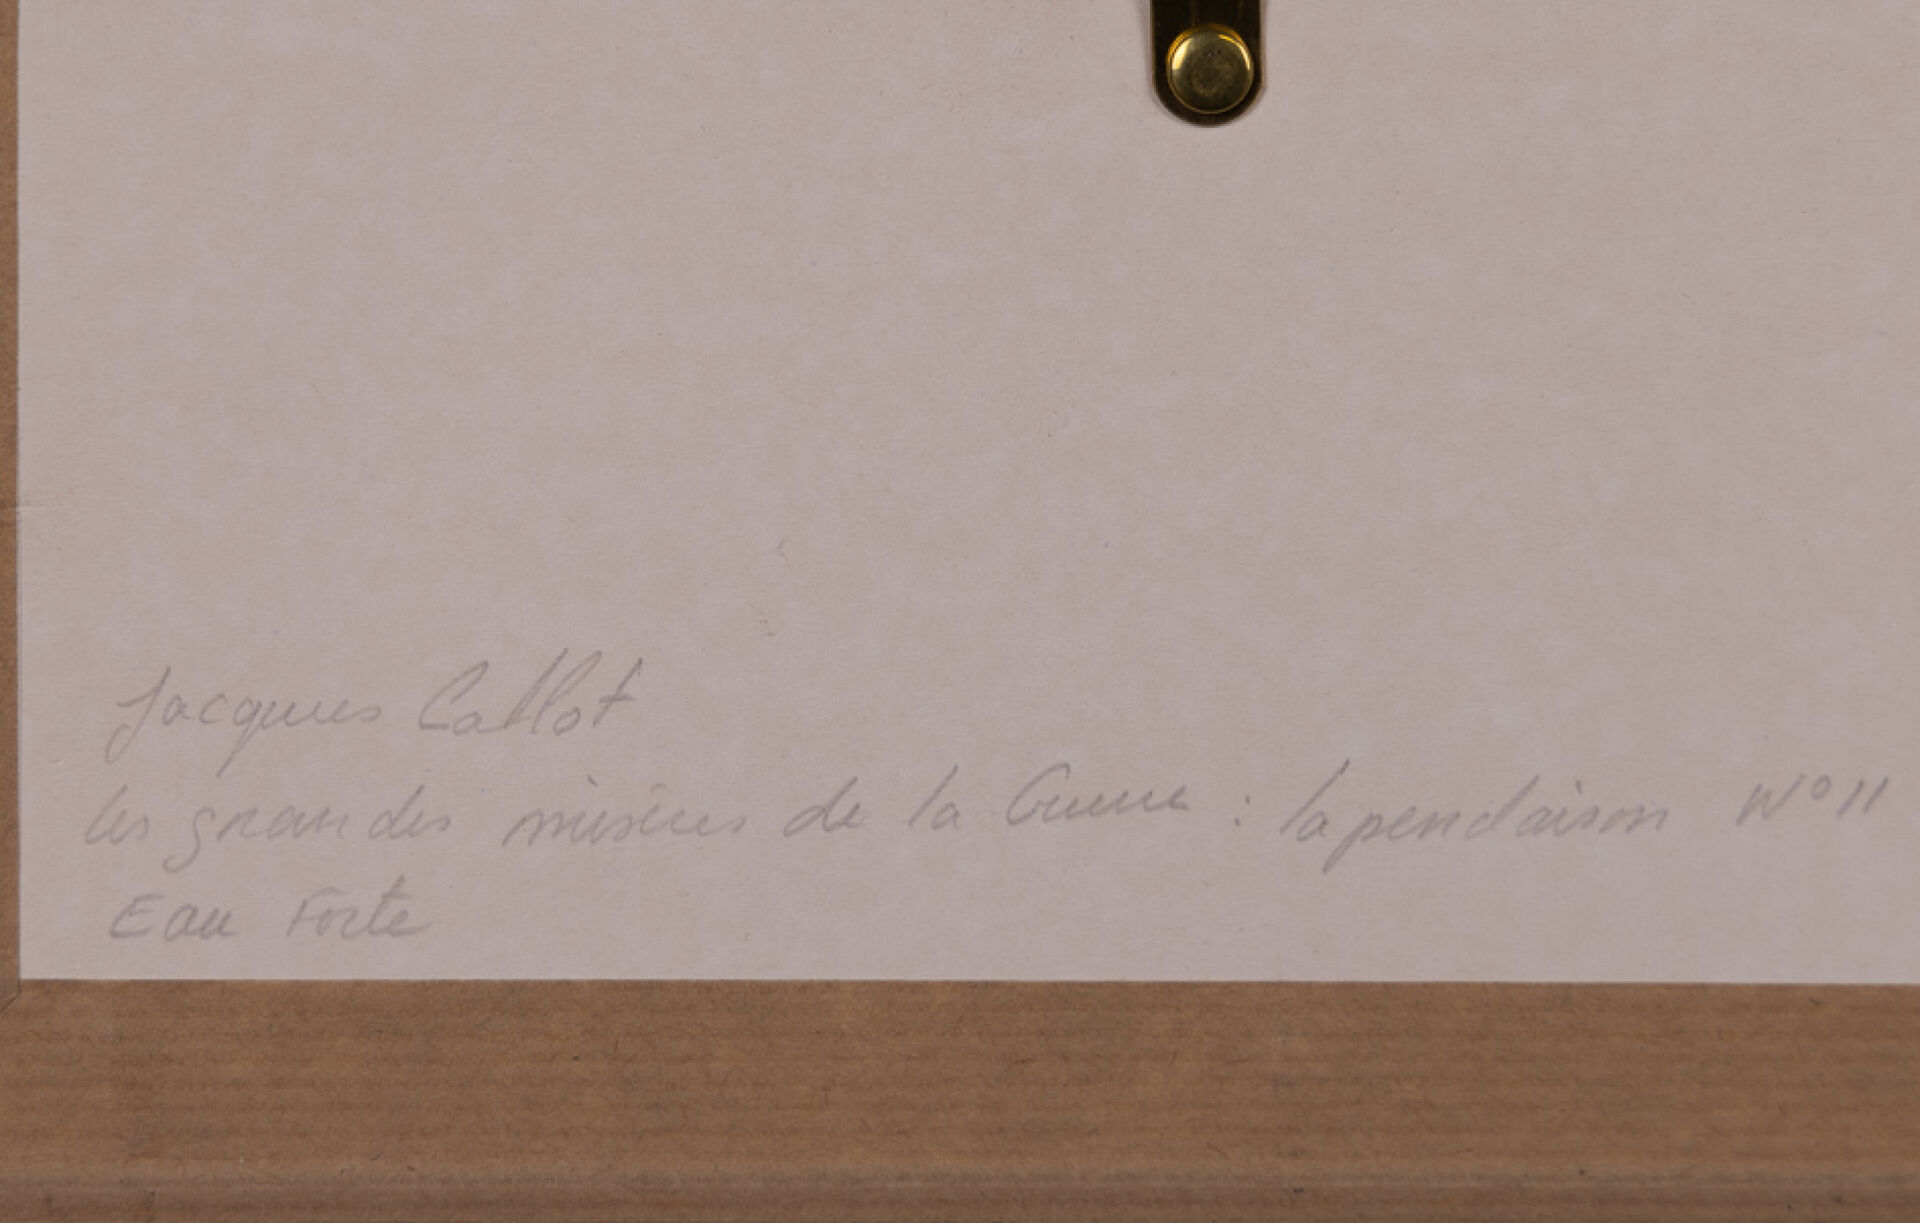 Jacques Callot
les grandes misères de la Guerre : la pendaison N° 11
Eau Forte